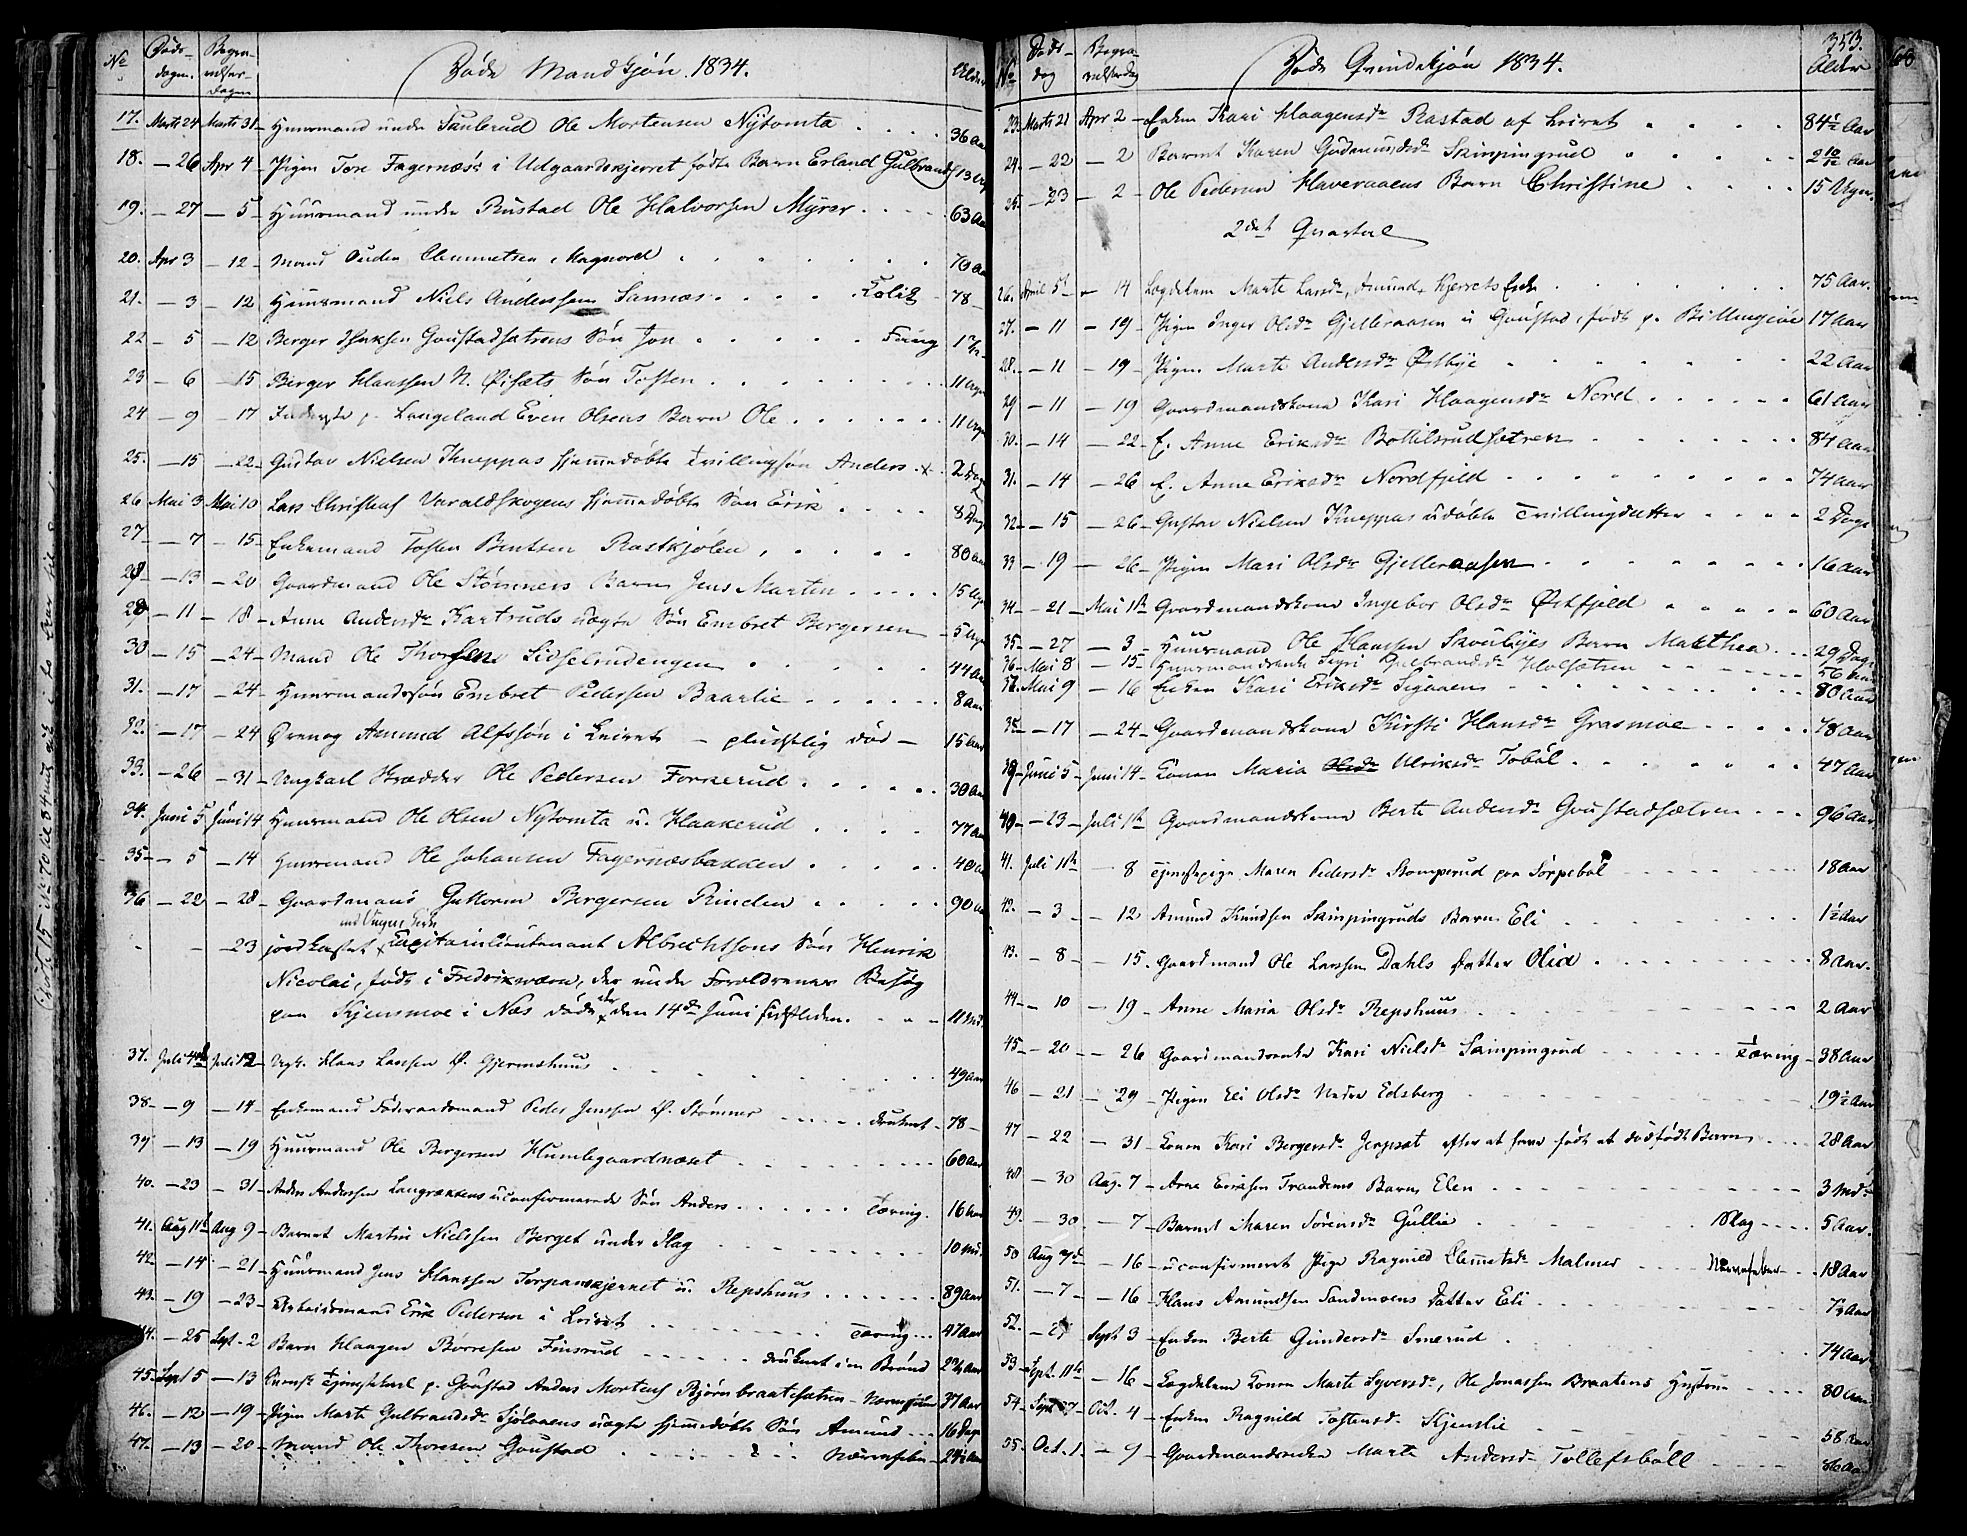 No Døds-dagen. Begravelses-Dagen Døde Mandkjøn. 1834. Alder
17. Marts 24 Marts 31 Huusmand under Sanberud Ole Mortensen Nytomta 36 Aar
18. 26 Apr 4 Pigen Tore Fagernæs's i Udgaardskjerret fødte Barn Erland Gulbrands 13 Uger
19. 27 5 Huusmand under Rustad Ole Halvorsen Myrer 63 Aar
20. Apr 3 12 Mand Ouden Clemmetsen Hagnord 70 Aar
21. 3 12 Huusmand Niels Andersen Sannæs Colik 78
22 5 12 Berger Goustadsætrens Søn Jon
23 6 15 Berger Haassen N. Øisæts Søn Tosten 11 Uger
24 9 17 Inderste p. Langeland Even Olsens Barn Ole 11 Uger
25. 15 22 Gustav Nielsen Kneppas hjemmedøbte Tvillingsøn Anders 2 Dage
26 Mai 3 Mai 10 Lars Christens Varaldskogens hjemmedøbte Søn Erik 8 Dage
27 7 15 Enkemand Tosten Bentsen Rastkjølen 80 Aar
28 13 20 Gaardmand Ole Stømners Barn Jens Martin 15 Uger
29 11 18 Anne Andersdr Kartruds uægte Søn Embret Bergersen 5 Uger
30 15 24 Mand Ole Thorsen Sidselrudengen 44 Aar
31. 17 24 Huusmandssøn Embret Pedersen Baarlie 8 Aar
32. 17 24 Dreng Amund Alfssøn i Leiret pludselig død 15 Aar
33. 26 31 Ungkarl Skrædder Ole Pedersen Forkerud 30 Aar
34. Juni 5 Juni 14 Huusmand Ole Olsen Nytomta u. Haakerud 77 Aar
35 5 14 Huusmand Ole Johansen Fagernæsbakken 40 Aar
36 22 28 Gaardmand Guttorm Bergersen Rinden 90 Aar
23 jordkastet Capitainlieutenant Albrechtsons Søn Henrik
Nicolai, født i Fredriksværn, der under Forældrenes Besøg
paa Kjensmoe i Næs døde den 14de Juni sidstleden. 11 Md.
37. Juli 4de Juli 12 Ungk. Hans Larsen Ø. Gjermshuus 49 Aar
38 9 14 Enkemand Føderaadsmand Peder Jensen Ø. Stømner druknet 78
39 13 19 Huusmand Ole Bergersen Humlegaardnæset 60 Aar
40. 23 31 Anders Andersen Langrækkens uconfirmerede Søn Anders Tæring 16 Aar
41. Aug 1ste Aug 9 Barnet Martin Nielssen Berget under Slag 10 Md.
42 14 21 Huusmand Jens Hanssen Torpanskjerret u. Repshuus 89 Aar
43. 19 23 Arbeidsmand Erik Pedersen i Leiret Tæring 47 Aar
44. 25 Sept. 2 Barn Haagen Børresen Finsrud druknet i en Brønd 2½ Aar
45 Sept 5 13 Svensk Tjenestekarl p. Goustad Anders Mortens Bjørnbraatesætren Nervefeber 37 Aar
46. 12 19 Pigen Marte Gulbrandsdr Sjølaaens uægte hjemmedøbte Søn Amund 16 Dage
47. 13 20 Mand Ole Thoresen Goustad Nervefeber 24½ Aar
353.
No Døds-dag Begravelsesdag Døde Qvindekjøn 1834. Alder
23. Marts 21 Apr 2 Enken Kari Haagensdr Rastad af Leiret 84½ Aar
24. 22 2 Barnet Karen Gudmundsdr Skirpingrud 2 10/12 Aar
25. 23 2 Ole Pedersen Haveraaens Barn Christine 15 Uger.
2det Quartal
26. April 5te 14 Lægdelem Marte Larsdr, Amund Kjerrets Enke 75 Aar.
27. 11 19 Pigen Inger Olsdr Gjelleraasen u Goustad, født p. Billingøe 17 Aar
28. 11 19 Pigen Marte Andersdr Østbye 22 Aar
29 11 19 Gaardmandskone Kari Haagensdr Nord 61 Aar
30. 14 22 E. Anne Eriksdr Bottilsrudsetren 84 Aar
31. 14 26 E. Anne Eriksdr Nordfjeld 74 Aar
32 15 26 Gustav Nielsen Kneppas udøbte Tvillingdatter 2 Dage
33 19 26 Pigen Mari Olsdr Gjelleraasen 16 Aar
34. 21 Mai 1ste Gaardmandskone Ingebor Olsdr Østfjeld 60 Aar
35 27 3 Huusmand Ole Hansen Skoubyes Barn Marthea 29 Dage
36 Mai 8 15 Huusmandsenke Sigri Gulbrandsdr Holsætren 56 Aar
37. Mai 9 16 Enken Kari Eriksdr Sigaaens 80 Aar
38 17 24 Gaardmandskone Kirsti Hansdr Grasmoe 78 Aar
39 Juni 5 Juni 14 Konen Maria Olsdr Ulriksdr Tobøl 47 Aar
40 23 Juli 1ste Gaardmandskone Berte Andersdr Goustadsætren 96 Aar
41. Juli 1ste 8 Tjenestepige Maren Pedersdr Stomperud paa Sørpebøl 18 Aar
42. 3 12 Amund Knudsen Skirpingruds Barn Eli 1½ Aar
43. 8 15. Gaardmand Ole Larssen Dahls Datter Olia 8 Aar.
44 10 19 Anne Maria Olsdr Repshuus 2 Aar
45 20 26 Gaardmandsenke Kari Nielsdr Skirpingrud Tæring 38 Aar
46 21 29 Pigen Eli Olsdr Nedre Edsberg 19½ Aar
47 22 31 Konen Kari Bergersdr Jerpsæt efter at have født et dødfødt Barn 28 Aar
48 30 Aug. 7 Arne Ericsen Trandems Barn Elen 3 Mdr
49. 30. 7 Barnet Maren Sørensdr Gullie Slag 5 Aar.
50 Aug 7de 16 uconfirmeret Pige Ragnild Clemetsdr Malmer Nervefeber 18 Aar
51. 7 16 Hans Amundsen Sandmoens Datter Eli
52. Sept 3 Enken Berte Gundersdr Smerud 74 Aar
53 Sept. 11te 16 Lægdelem Konen Marte Syversdr, Ole Jonassen Braatens Hustrue 80 Aar
54 Sept 27 Oct. 4 Enken Ragnild Tostensdr Kjenslie 58 Aar
55 Oct. 1. 9 Gaardmandsenke Marte Andersdr Tollefsbøll 86 Aar